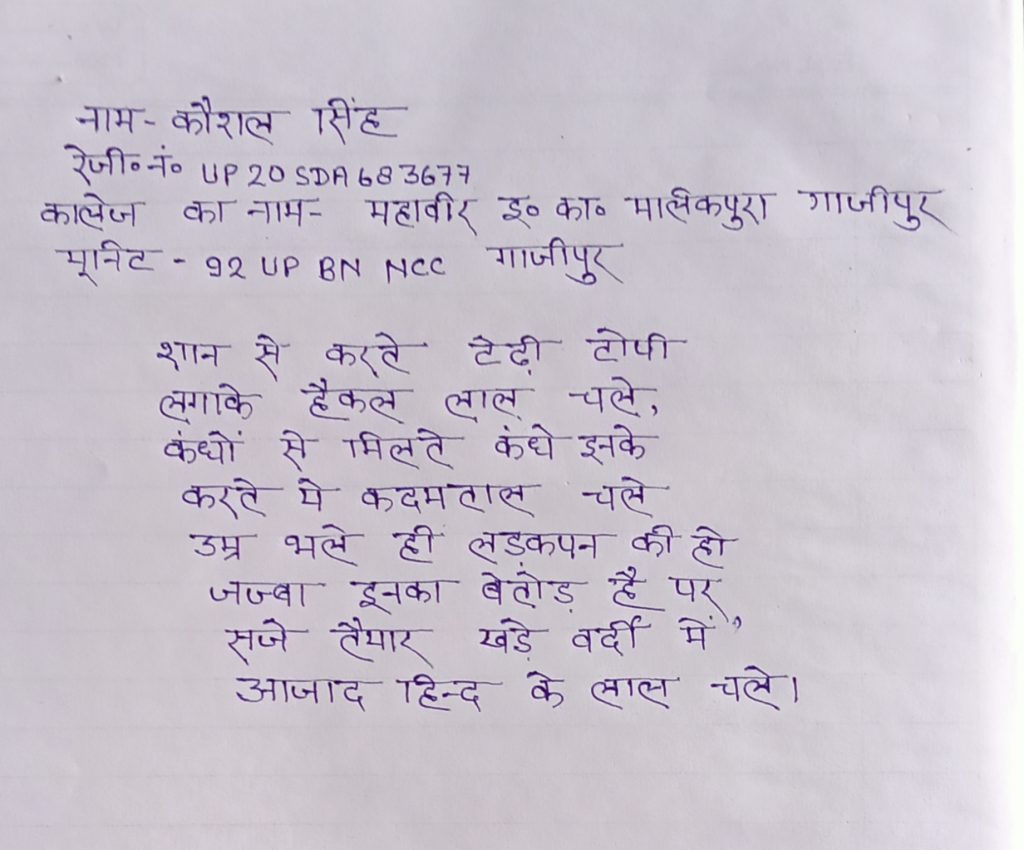 नाम- कौशल सिंह
रेजी०नं० UP 20 SDA 683677
कालेज का नाम- महावीर इ० का० मालिकपुरा गाजीपुर
यूनिट - 92 UP BN NCC गाजीपुर
शान से करते टेढ़ी टोपी
लगाके हैकल लाल चले,
कंधों से मिलते कंधे इनके
करते ये कदमताल चले
उम्र भले ही लड़कपन की हो
जज्बा इनका बेतोड़ है पर
सजे तैयार खड़े वर्दी में,
आजाद हिन्द के लाल चले।